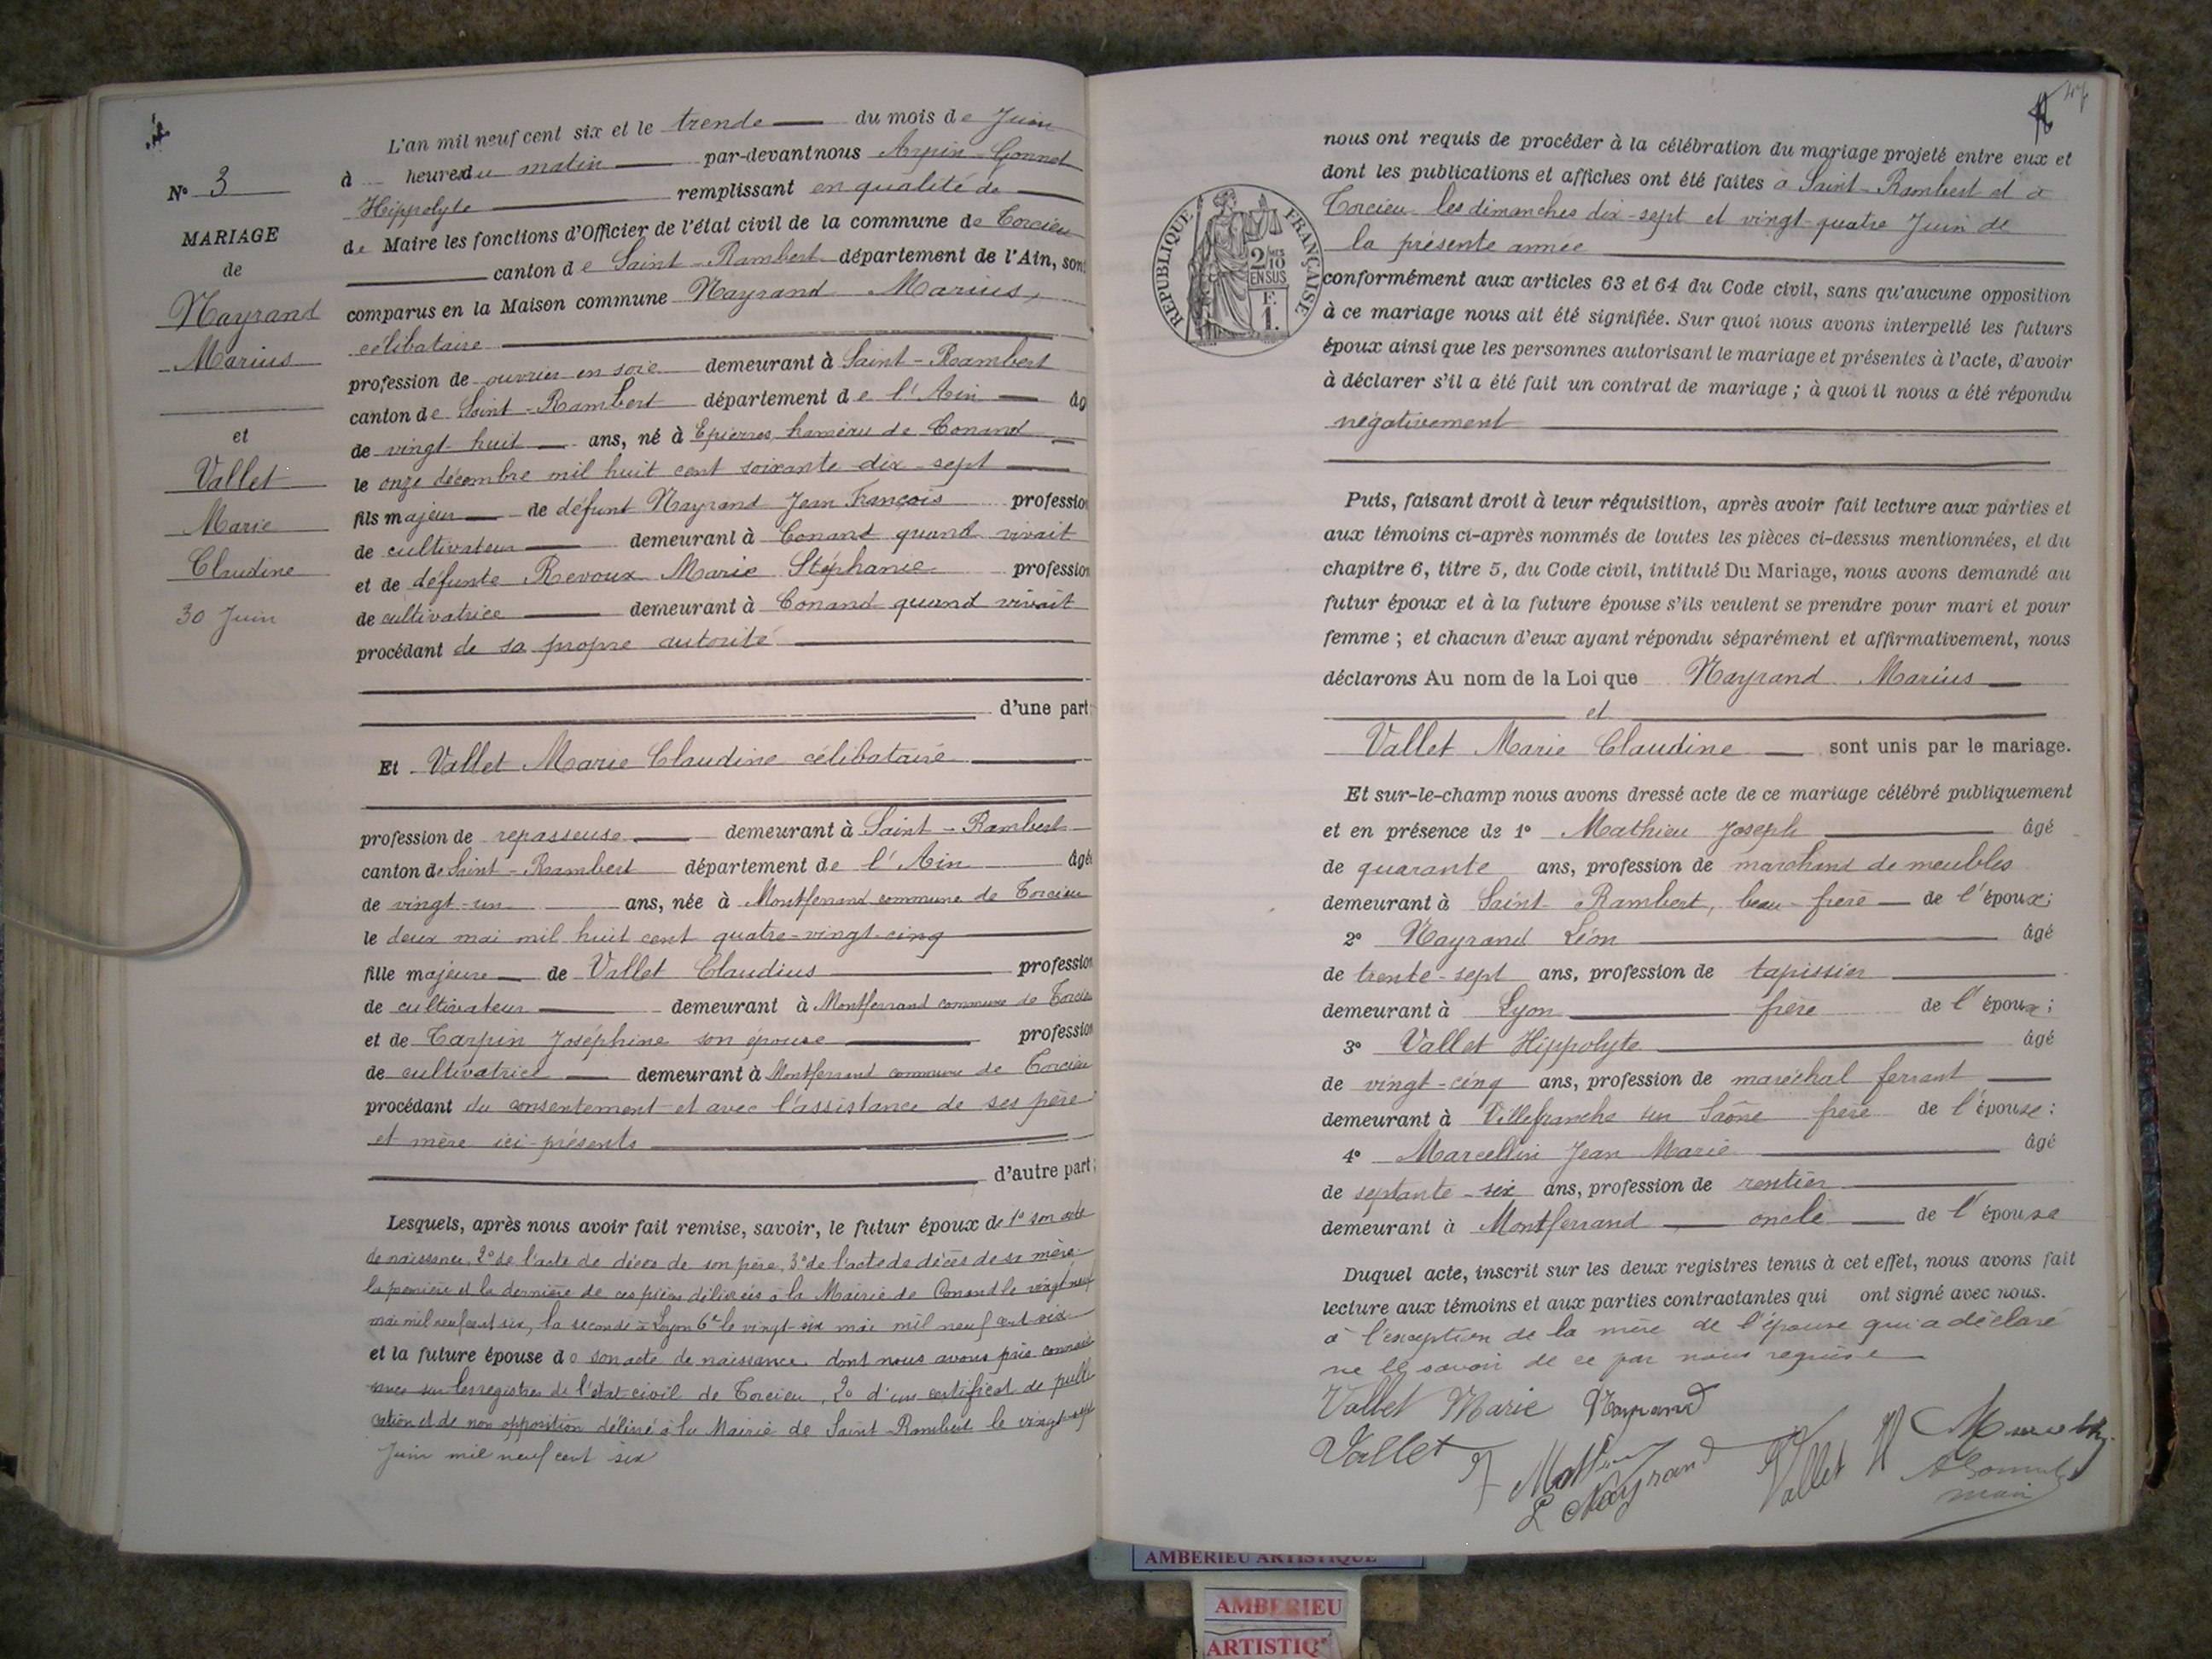 N° 3
MARIAGE
de
Nayrand
Marius
et
Vallet
Marie
Claudine
30 Juin
L'an mil neuf cent six et le trende du mois de Juin
à heures du matin par-devant nous Arpin-Gonnet
Hippolyte remplissant en qualité de
de Maire les fonctions d'Officier de l'état civil de la commune de Torcieu
canton de Saint-Rambert département de l'Ain, sont
comparus en la Maison commune Nayrand Marius,
célibataire
profession de ouvrier en soie demeurant à Saint-Rambert
canton de Saint-Rambert département de l'Ain âg
de vingt huit ans, né à Epierres, hameau de Conand
le onze décembre mil huit cent soixante-dix-sept
fils majeur de défunt Nayrand Jean François profession
de cultivateur demeurant à Conand quand vivait
et de défunte Revoux Marie Stéphanie profession
de cultivatrice demeurant à Conand quand vivait
procédant de sa propre autorité
d'une part;
Et Vallet Marie Claudine célibataire
profession de repasseuse demeurant à Saint-Rambert
canton de Saint-Rambert département de l'Ain âgée
de vingt-un ans, née à Montferrand commune de Torcieu
le deux mai mil huit cent quatre-vingt-cinq
fille majeure de Vallet Claudius profession
de cultivateur demeurant à Montferrand commune de Torcieu
et de Tarpin Joséphine son épouse profession
de cultivatrice demeurant à Montferrand commune de Torcieu
procédant du consentement et avec l'assistance de ses père
et mère ici-présents
d'autre part;
Lesquels, après nous avoir fait remise, savoir, le futur époux de 1° son acte
de naissance, 2° de l'acte de décès de son père, 3° de l'acte de décès de sa mère
la première et la dernière de ces pièces délivrées à la Mairie de Conand le vingt neuf
mai mil neuf cent six, la seconde à Lyon 6e le vingt-six mai mil neuf cent six
et la future épouse de son acte de naissance dont nous avons pris connais
sance sur les registres de l'état-civil de Torcieu, 2° d'un certificat de publi
cation et de non opposition délivré à la Mairie de Saint-Rambert le vingt-sept
Juin mil neuf cent six
47
nous ont requis de procéder à la célébration du mariage projeté entre eux et
dont les publications et affiches ont été faites à Saint-Rambert et à
Torcieu les dimanches dix-sept et vingt-quatre Juin de
la présente année
RÉPUBLIQUE FRANÇAISE
2/10
EN SUS
F.
1.
conformément aux articles 63 et 64 du Code civil, sans qu'aucune opposition
à ce mariage nous ait été signifiée. Sur quoi nous avons interpellé les futurs
époux ainsi que les personnes autorisant le mariage et présentes à l'acte, d'avoir
à déclarer s'il a été fait un contrat de mariage ; à quoi il nous a été répondu
négativement
Puis, faisant droit à leur réquisition, après avoir fait lecture aux parties et
aux témoins ci-après nommés de toutes les pièces ci-dessus mentionnées, et du
chapitre 6, titre 5, du Code civil, intitulé Du Mariage, nous avons demandé au
futur époux et à la future épouse s'ils veulent se prendre pour mari et pour
femme ; et chacun d'eux ayant répondu séparément et affirmativement, nous
déclarons Au nom de la Loi que Nayrand Marius
et
Vallet Marie Claudine sont unis par le mariage.
Et sur-le-champ nous avons dressé acte de ce mariage célébré publiquement
et en présence de 1° Mathieu Joseph âgé
de quarante ans, profession de marchand de meubles
demeurant à Saint-Rambert, beau-frère de l'époux;
2° Nayrand Léon âgé
de trente-sept ans, profession de tapissier
demeurant à Lyon frère de l'époux;
3° Vallet Hippolyte âgé
de vingt-cinq ans, profession de maréchal ferrant
demeurant à Villefranche sur Saône frère de l'épouse:
4° Marcellin Jean Marie âgé
de septante-six ans, profession de rentier
demeurant à Montferrand oncle de l'épouse
Duquel acte, inscrit sur les deux registres tenus à cet effet, nous avons fait
lecture aux témoins et aux parties contractantes qui ont signé avec nous.
à l'exception de la mère de l'épouse qui a déclaré
ne le savoir de ce par nous requise
Vallet Marie Nayrand
Vallet J Mathieu Vallet H
L Nayrand
AMBERIEU ARTISTIQUE
AMBERIEU
ARTISTIQ